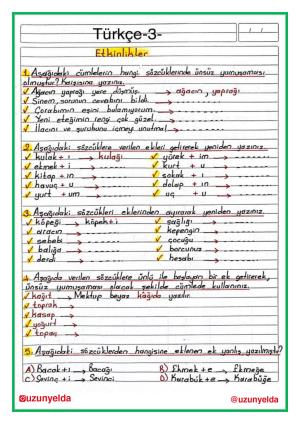 Türkçe-3-
/ /
Etkinlikler
1. Aşağıdaki cümlelerin hangi sözcüklerinde ünsüz yumuşaması
olmuştur? Karşısına yazınız.
Ağacın yaprağı yere düşmüş. → ağacın, yaprağı
Sinem, sorunun cevabını bildi. →
Çorabımın eşini bulamıyorum. →
Yeni eteğimin rengi çok güzel. →
İlacını ve şurubunu içmeyi unutma! →
2. Aşağıdaki sözcüklere verilen ekleri getirerek yeniden yazınız.
kulak + ı → kulağı
yürek + im →
ekmek + i →
kurt + u →
kitap + ın →
sokak + ı →
havuç + u →
dolap + ın →
yurt + um →
uç + u →
3. Aşağıdaki sözcükleri eklerinden ayırarak yeniden yazınız.
köpeği → köpek + i
sağlığı →
aracın →
kepengin →
sebebi →
çocuğu →
balığa →
borcunuz →
derdi →
hesabı →
4. Aşağıda verilen sözcüklere ünlü ile başlayan bir ek getirerek,
ünsüz yumuşaması olacak şekilde cümlede kullanınız.
kağıt → Mektup beyaz kağıda yazılır.
toprak →
kasap →
yoğurt →
topaç →
5. Aşağıdaki sözcüklerden hangisine eklenen ek yanlış yazılmıştır?
A) Bacak + ı → Bacağı
B) Ekmek + e → Ekmeğe
C) Sevinç + i → Sevinci
D) Karabük + e → Karabüğe
@uzunyelda
@uzunyelda